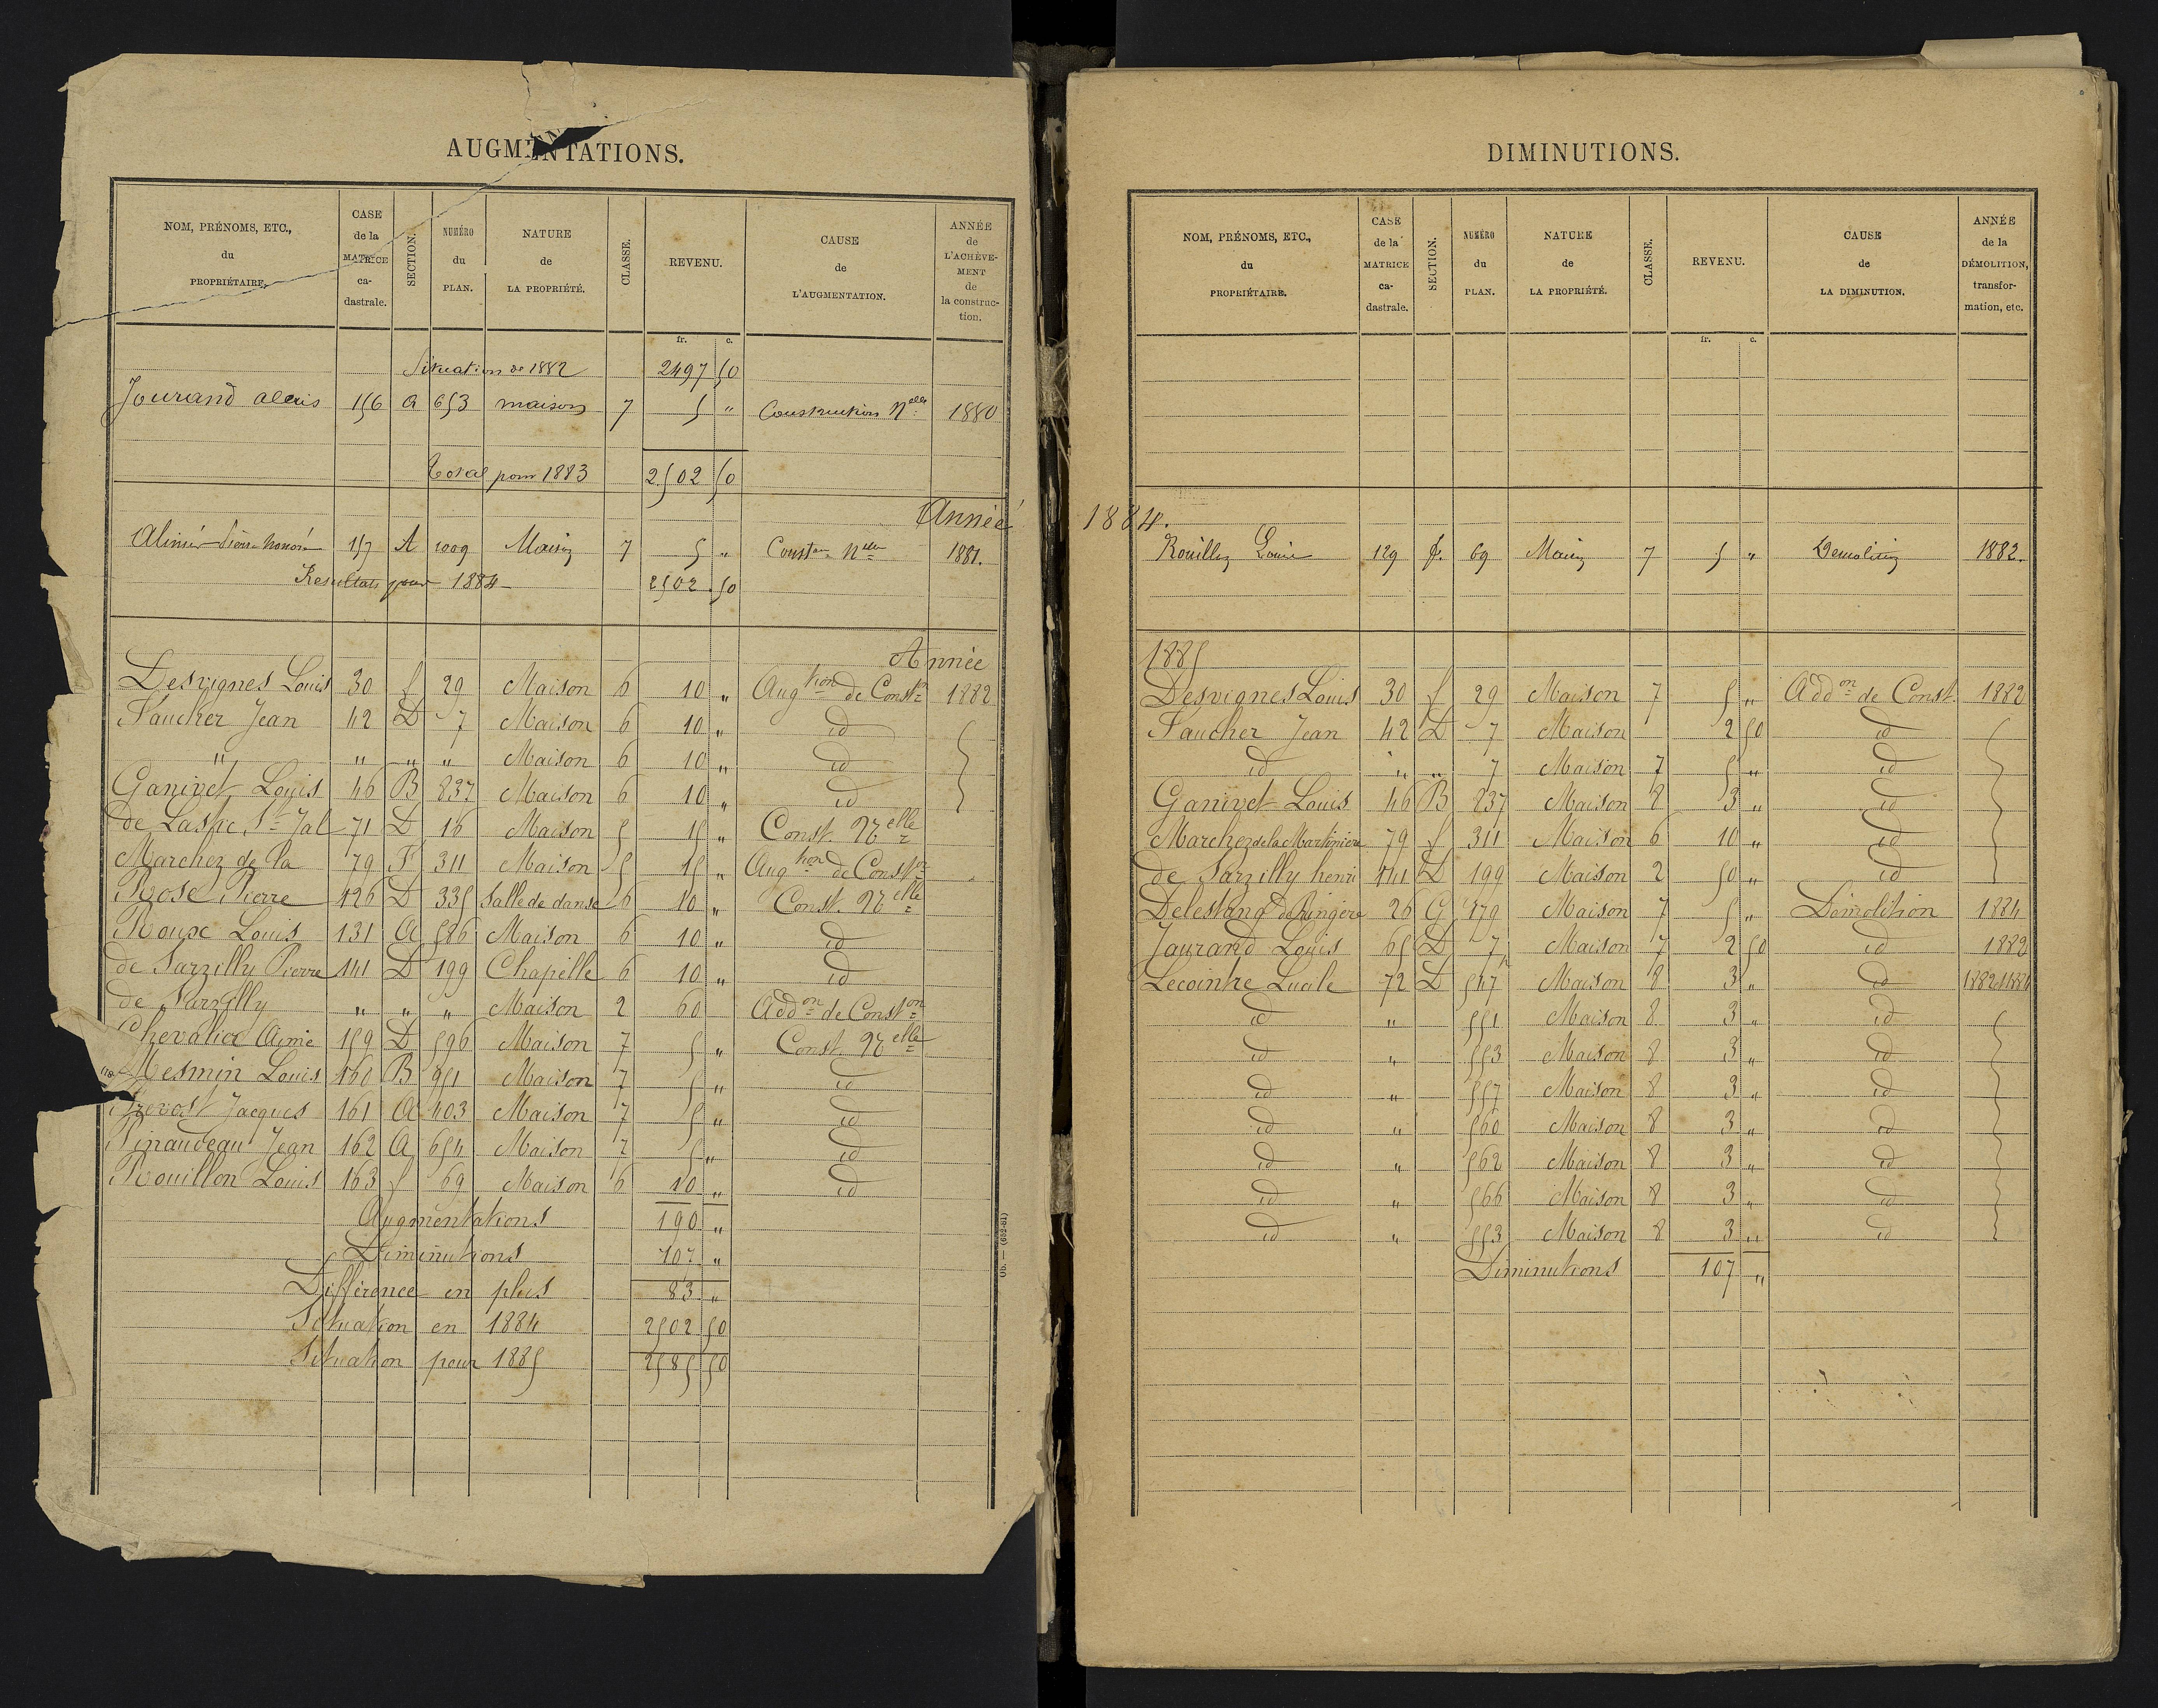 AUGMENTATIONS.
NOM, PRÉNOMS, ETC., du PROPRIÉTAIRE. CASE de la MATRICE ca-dastrale. SECTION. NUMÉRO du PLAN. NATURE de LA PROPRIÉTÉ. CLASSE. REVENU. CAUSE de L'AUGMENTATION. ANNÉE de L'ACHÈVE-MENT de la construc-tion.
fr. c.
Situation de 1882 2497 50
Jourand alexis 156 a 653 maison 7 5 " Construction Nelle 1880
Total pour 1883 2502 50
Année
Pierre honoré 157 A 1009 Maison 7 5 " Conston Nelle 1881.
Resultats pour 1884 2502 50
Année
Desvignes Louis 30 f 29 Maison 6 10 " Augtion de Constn 1882
Faucher Jean 42 D 7 Maison 6 10 " id
" " " " Maison 6 10 " id
Ganivet Louis 46 B 837 Maison 6 10 " id
de Lastic St Jal 71 D 16 Maison 5 15 " Const. Nelle
Marchez de la 79 F 311 Maison 5 15 " Augtion de Conston
Rose Pierre 126 D 335 Salle de danse 6 10 " Const. Nelle
Roux Louis 131 a 586 Maison 6 10 " id
de Sarzilly Pierre 141 D 199 Chapelle 6 10 " id
de Sarzilly " " " Maison 2 60 Addon de Conston
Chevalier Aimé 159 D 596 Maison 7 5 " Const. Nelle
Mesmin Louis 160 B 951 Maison 7 5 " id
Prevost Jacques 161 a 403 Maison 7 5 " id
Pinaudeau Jean 162 a 654 Maison 7 5 " id
Rouillon Louis 163 f 69 Maison 6 10 " id
Augmentations 190 "
Diminutions 107 "
Différence en plus 83 "
Situation en 1884 2502 50
Situation pour 1885 2585 50
Ob. — (652-81)
DIMINUTIONS.
NOM, PRÉNOMS, ETC., du PROPRIÉTAIRE. CASE de la MATRICE ca-dastrale. SECTION. NUMÉRO du PLAN. NATURE de LA PROPRIÉTÉ. CLASSE. REVENU. CAUSE de LA DIMINUTION. ANNÉE de la DÉMOLITION, transfor-mation, etc.
fr. c.
1884.
Rouillon Louis 129 f. 69 Maison 7 5 " Demolition 1882.
1885
Desvignes Louis 30 f 29 Maison 7 5 " Addon de Const. 1882
Faucher Jean 42 D 7 Maison 2 50 id
id " " 7 Maison 7 5 " id
Ganivet Louis 46 B 837 Maison 8 3 " id
Marchez de la Martiniere 79 f 311 Maison 6 10 " id
de Sarzilly henri 141 D 199 Maison 2 50 " id
Delestang de Ringère 26 G 179 Maison 7 5 " Démolition 1884
Jaurand Louis 65 D 7 Maison 7 2 50 id 1882
Lecointre Lucile 72 D 547 Maison 8 3 " id 1882
id " 551 Maison 8 3 " id
id " 553 Maison 8 3 " id
id " 557 Maison 8 3 " id
id " 560 Maison 8 3 " id
id " 562 Maison 8 3 " id
id " 566 Maison 8 3 " id
id " 553 Maison 8 3 " id
Diminutions 107 "